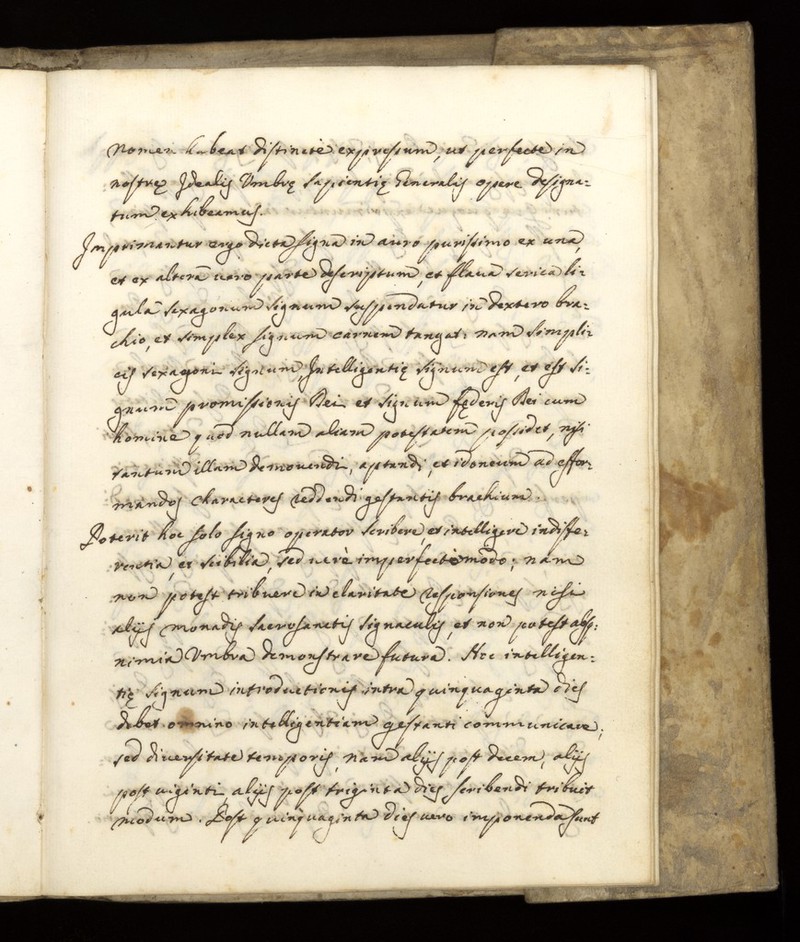 Nomen habeat distinctè expressum, ut perfecte in
nostrę Idealis Vmbrę sapientię Generalis opere designa=
tum exhibeamus.
Imprimantur ergo dicta signa in auro purissimo ex una,
et ex altera uero parte descriptum, et flaua serica li=
gula sexagonum signum suspendatur in dextero bra=
chio, et simplex signum carnem tangat: nam simpli=
cis sexagoni signum Intelligentię signum est, et est si=
gnum promissionis Dei et signum fęderis Dei cum
homine quod nullam aliam potestatem possidet, nisi
tantum illum demouendi, aptandi, et idoneum ad effor=
mandos characteres reddendi gestantis brachium.
Poterit hoc solo signo operator scribere, et intelligere indiffe=
rentia, et scibilia, sed uerè imperfecto modo; nam
non potest tribuere in claritate responsiones nisi
alijs monadis sacrosanctis signaculis, et non potest absq:
nimia Vmbra demonstrare futura. Hoc intelligen=
tię signum introductionis intra quinquaginta dies
debet omnino intelligentiam gestanti communicare;
sed diuersitate temporis, nam alijs post decem, alijs
post uiginti alijs post triginta dies scribendi tribuit
modum. Post quinquaginta dies uero imponenda sunt